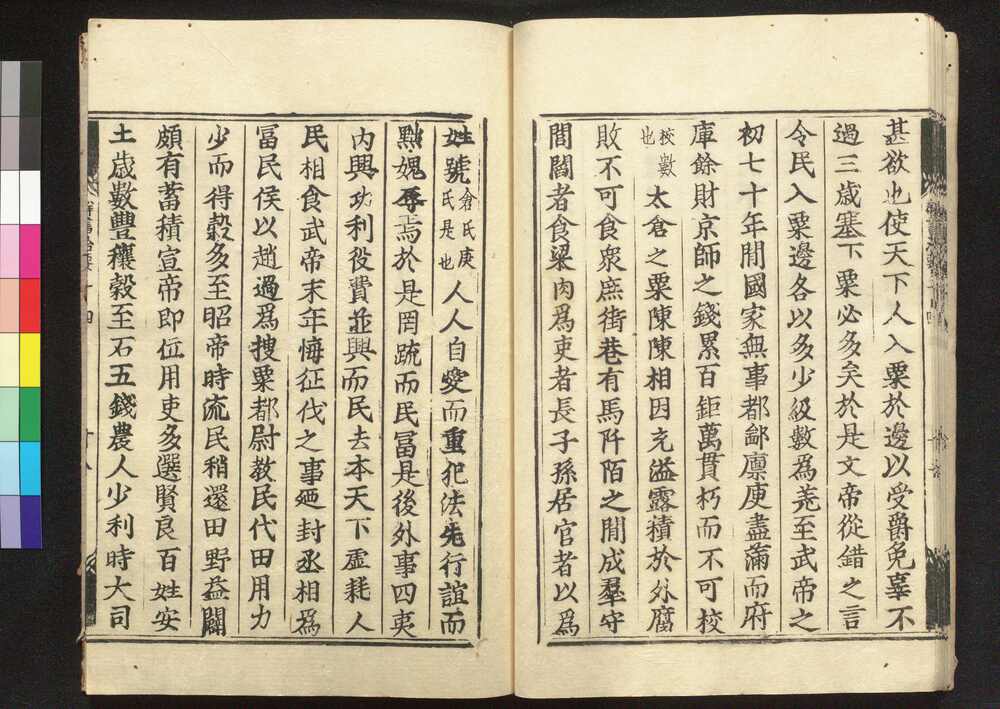 甚欲也使天下人入粟於邊以受爵免辠不
過三歲塞下粟必多矣於是文帝從錯之言
令民入粟邊各以多少級數為㒺至武帝之
初七十年閒國家無事都鄙廩庾盡滿而府
庫餘財京師之錢累百鉅萬貫朽而不可校
校數也太倉之粟陳陳相因充溢露積於外腐
敗不可食衆庶街巷有馬阡陌之閒成羣守
閭閻者食粱肉為吏者長子孫居官者以為
姓號倉氏庾氏是也人人自愛而重犯法先行誼而
黜媿辱焉於是罔疏而民冨是後外事四夷
内興功利役費並興而民去本天下虛耗人
民相食武帝末年悔征伐之事廼封丞相為
冨民侯以趙過為搜粟都尉教民代田用力
少而得穀多至昭帝時流民稍還田野益闢
頗有蓄積宣帝即位用吏多選賢良百姓安
土歲數豐穰穀至石五錢農人少利時大司